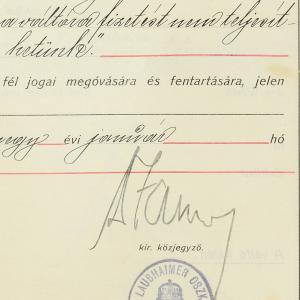 a váltóra fizetést nem teljesít-
hetünk."
fél jogai megóvására és fentartására, jelen
negy évi január hó
kir. közjegyző.
LAUBHAIMER OSZK